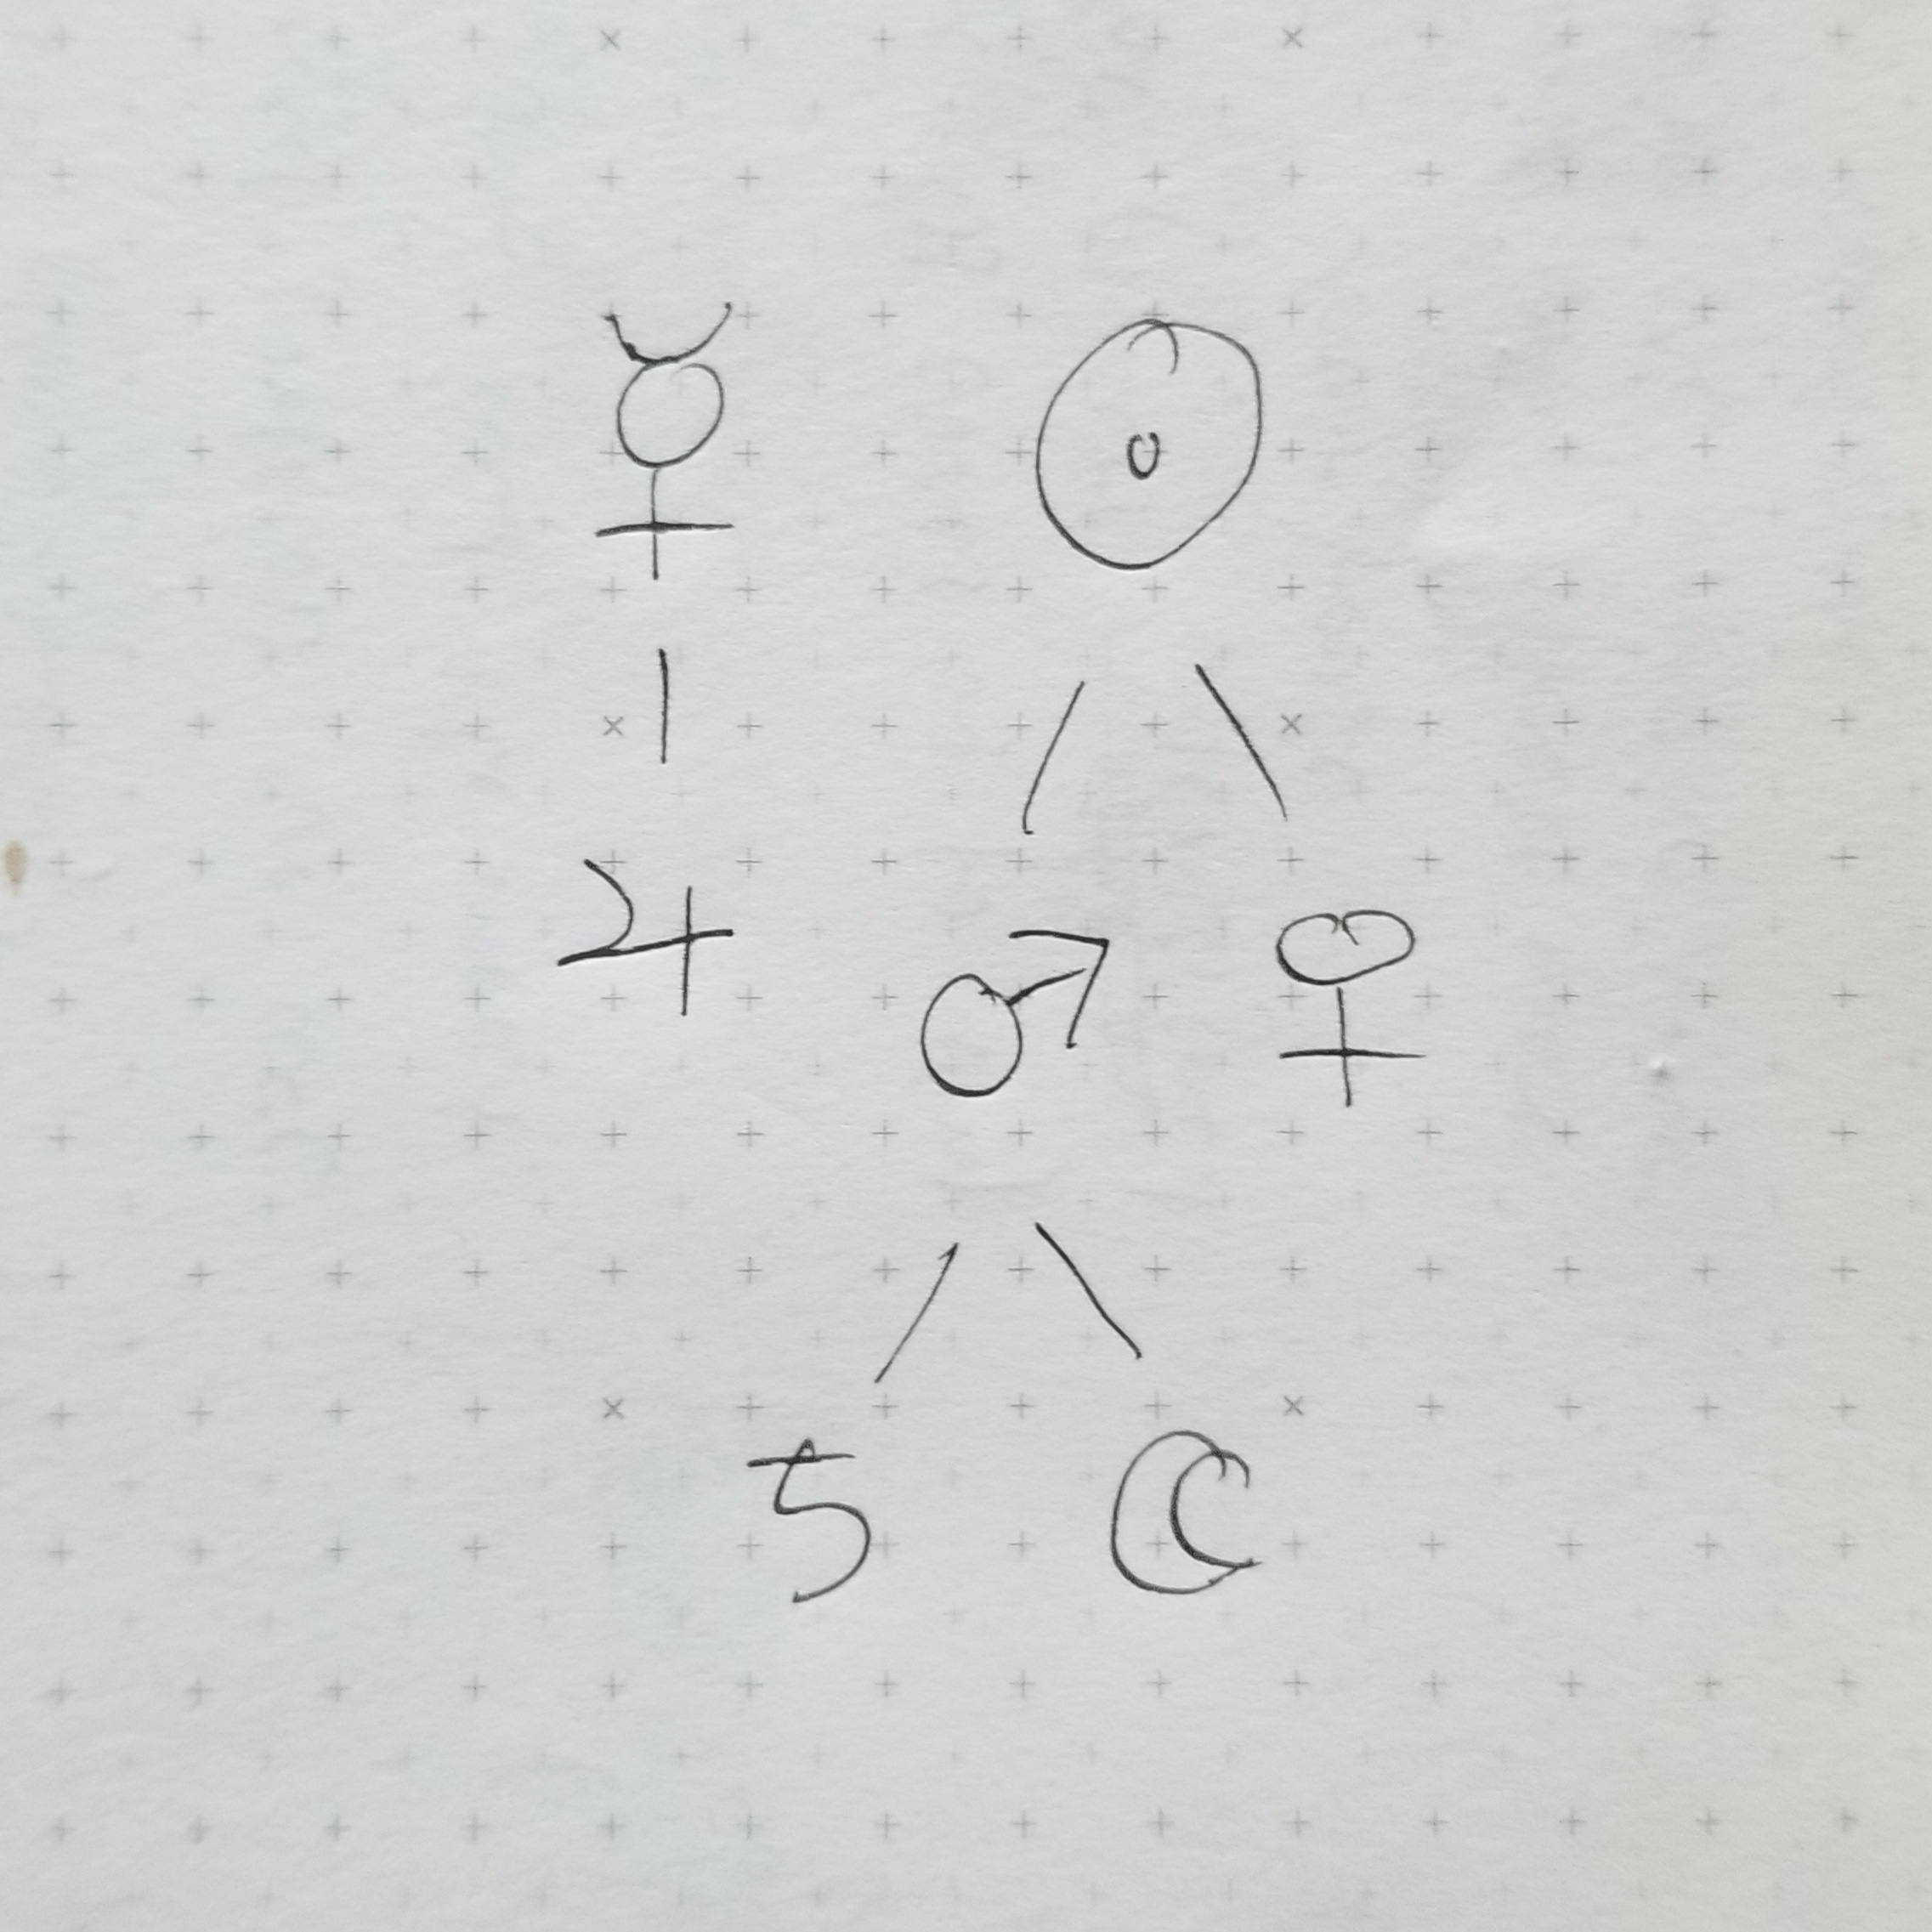 ☿ ☉
♃ ♂ ♀
♄ ☾